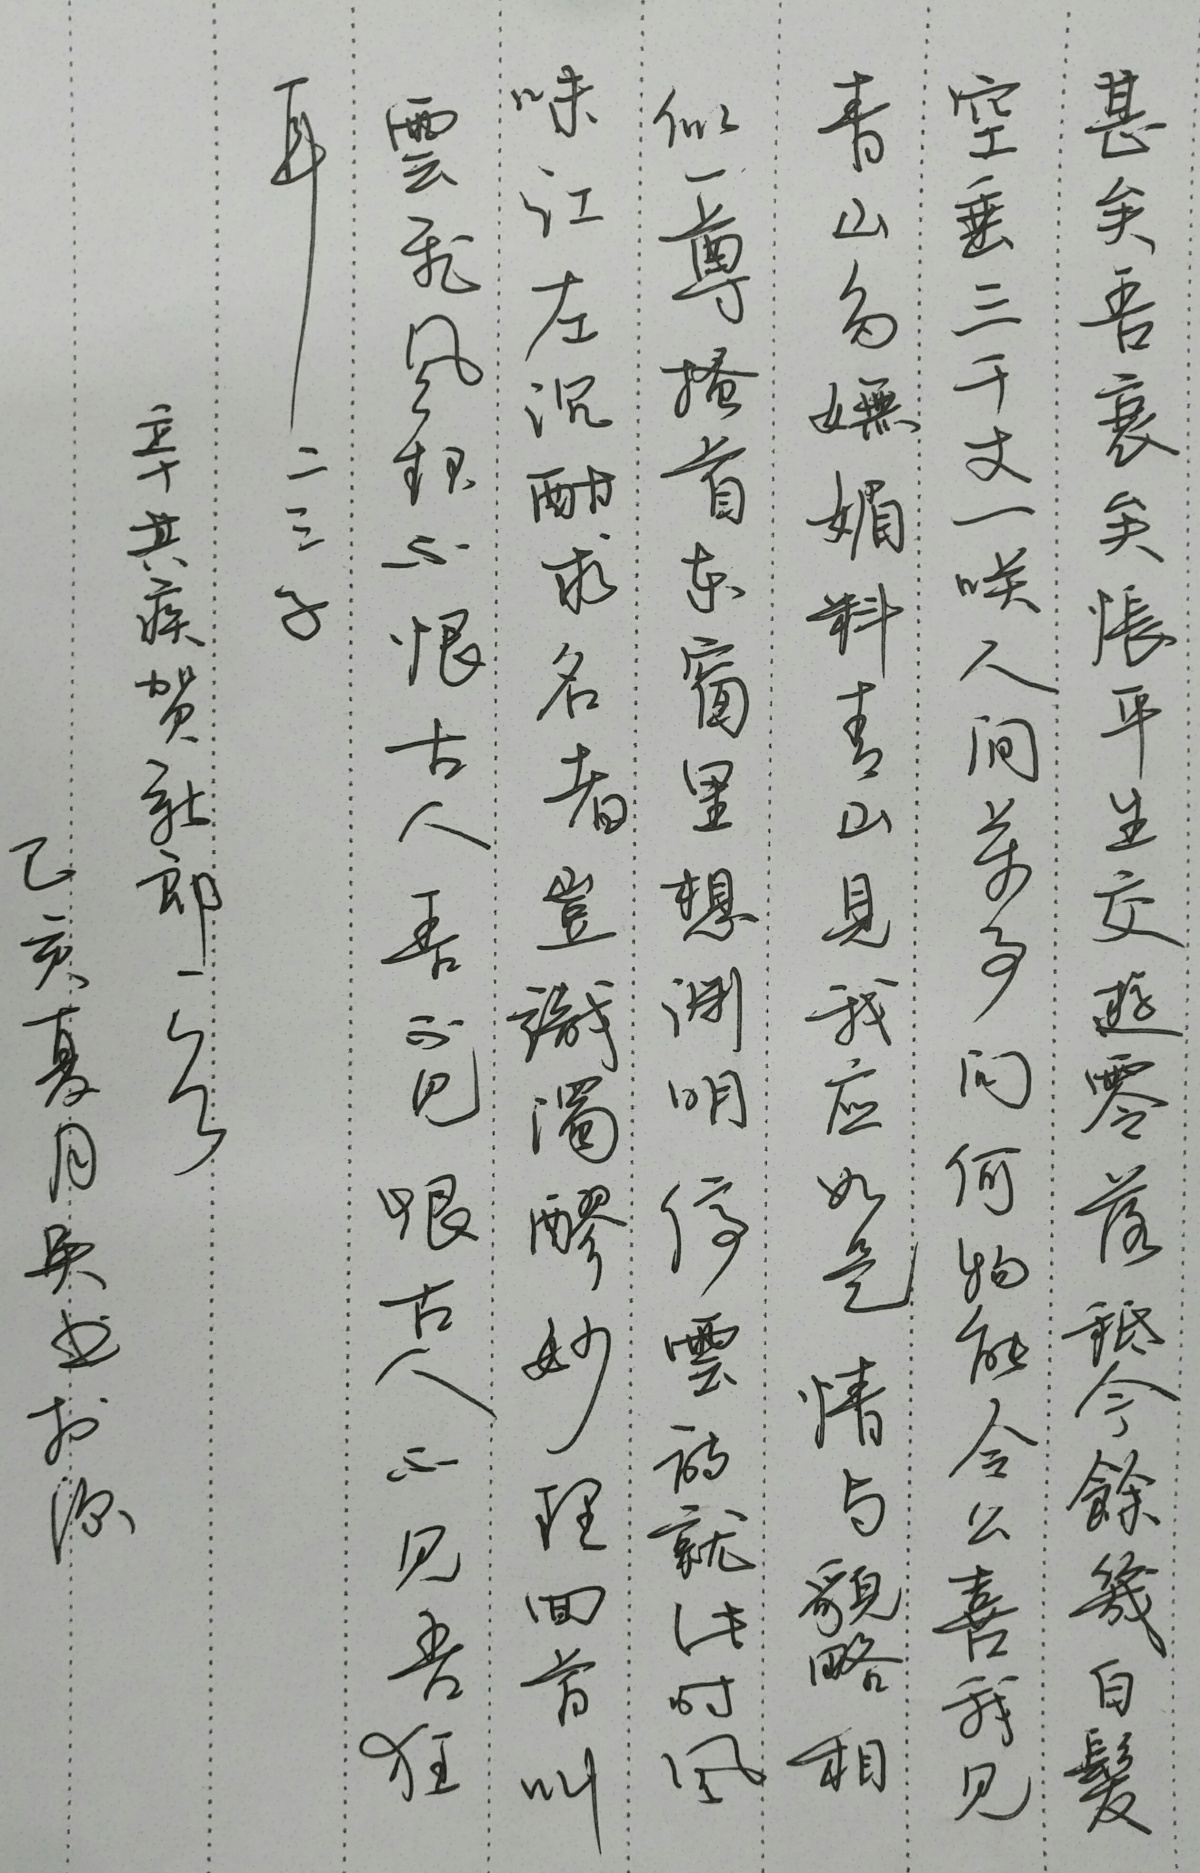 甚矣吾衰矣悵平生交遊零落祗今餘幾白髮
空垂三千丈一咲人间万事问何物能令公喜我见
青山多嫵媚料青山見我应如是情与貌略相
似一尊搔首东窗里想渊明停雲诗就此时風
味江左沉酣求名者豈識濁醪妙理回首叫
雲飛风起不恨古人吾不见恨古人不见吾狂
耳 二三子
辛
贺新郎一首
乙亥夏月吴